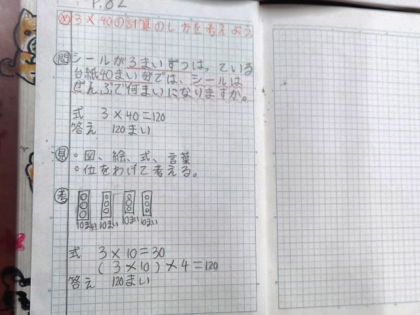 P.82
め 3×40の計算のしかたを考えよう
問 シールが3まいずつはっている
台紙40まい分では、シールは
ぜんぶで何まいになりますか。
式 3×40=120
答え 120まい
見 ○図、絵、式、言葉
○位をわけて考える。
考
10まい 10まい 10まい 10まい
式 3×10=30
(3×10)×4=120
答え 120まい